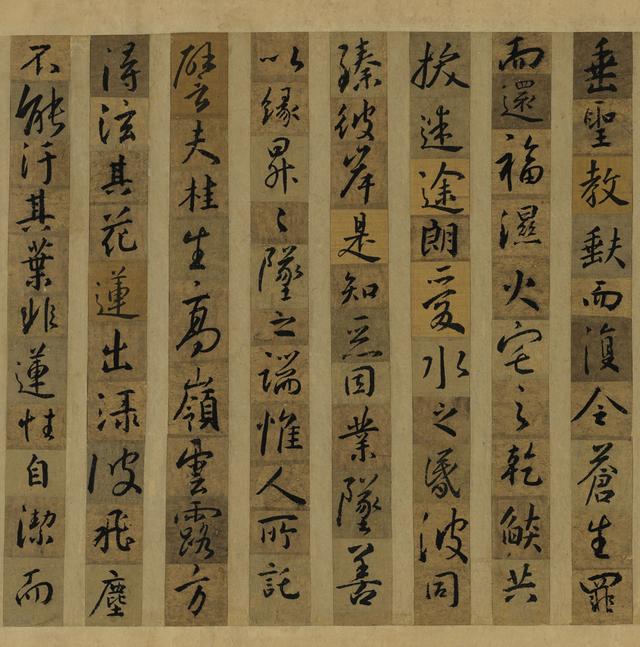 垂聖教缺而復全蒼生罪
而還福濕火宅之乾燄共
拔迷途朗愛水之昏波同
臻彼岸是知惡因業墜善
以緣昇〻墜之端惟人所託
譬夫桂生高嶺雲露方
得泫其花蓮出淥波飛塵
不能汙其葉非蓮性自潔而